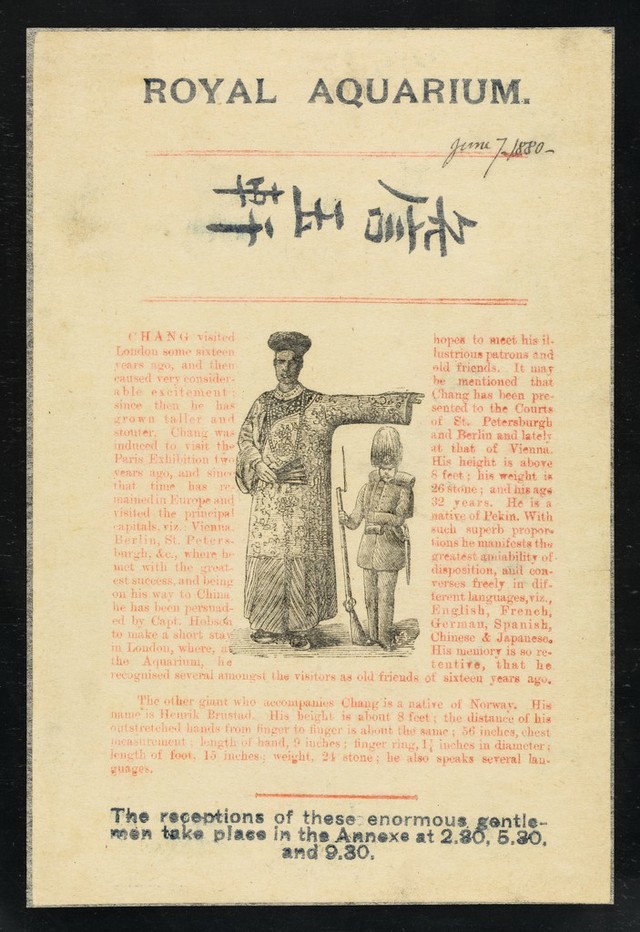 ROYAL AQUARIUM.
June 7. 1880-
詹玉軒
CHANG visited
London some sixteen
years ago, and then
caused very consider-
able excitement:
since then he has
grown taller and
stouter. Chang was
induced to visit the
Paris Exhibition two
years ago, and since
that time has re-
mained in Europe and
visited the principal
capitals, viz.: Vienna,
Berlin, St. Peters-
burgh, &c., where he
met with the great-
est success, and being
on his way to China
he has been persuad-
ed by Capt. Hobson
to make a short stay
in London, where, at
the Aquarium, he
hopes to meet his il-
lustrious patrons and
old friends. It may
be mentioned that
Chang has been pre-
sented to the Courts
of St. Petersburgh
and Berlin and lately
at that of Vienna.
His height is above
8 feet; his weight is
26 stone; and his age
32 years. He is a
native of Pekin. With
such superb propor-
tions he manifests the
greatest amiability of
disposition, and con-
verses freely in dif-
ferent languages, viz.,
English, French,
German, Spanish,
Chinese & Japanese.
His memory is so re-
tentive, that he
recognised several amongst the visitors as old friends of sixteen years ago.
The other giant who accompanies Chang is a native of Norway. His
name is Henrik Brustad. His height is about 8 feet; the distance of his
outstretched hands from finger to finger is about the same; 56 inches, chest
measurement; length of hand, 9 inches; finger ring, 1¼ inches in diameter;
length of foot, 15 inches; weight, 24 stone; he also speaks several lan-
guages.
The receptions of these enormous gentle-
men take place in the Annexe at 2.30, 5.30,
and 9.30.